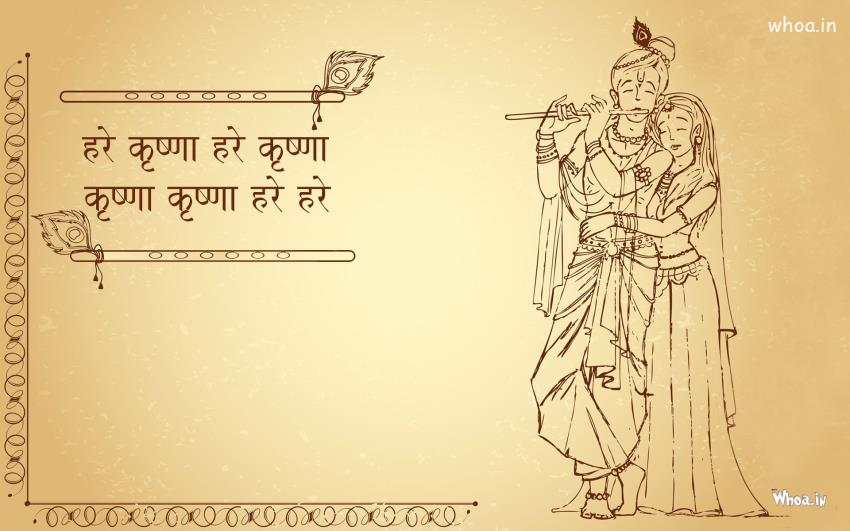 whoa.in
हरे कृष्णा हरे कृष्णा
कृष्णा कृष्णा हरे हरे
Whoa.in